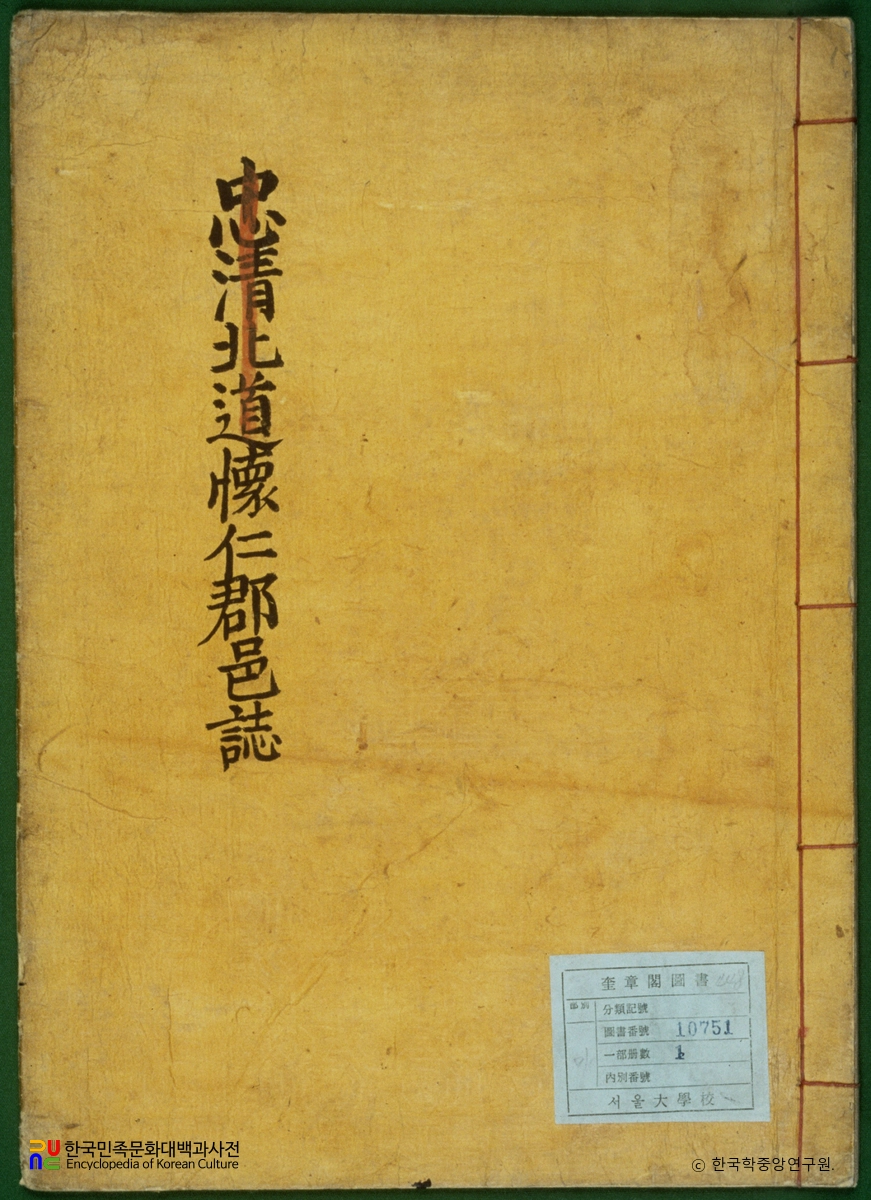 忠清北道懷仁郡邑誌
奎章閣圖書
分類記號
圖書番號 10751
一部冊數 1
內別番號
서울大學校
한국민족문화대백과사전
Encyclopedia of Korean Culture
© 한국학중앙연구원.